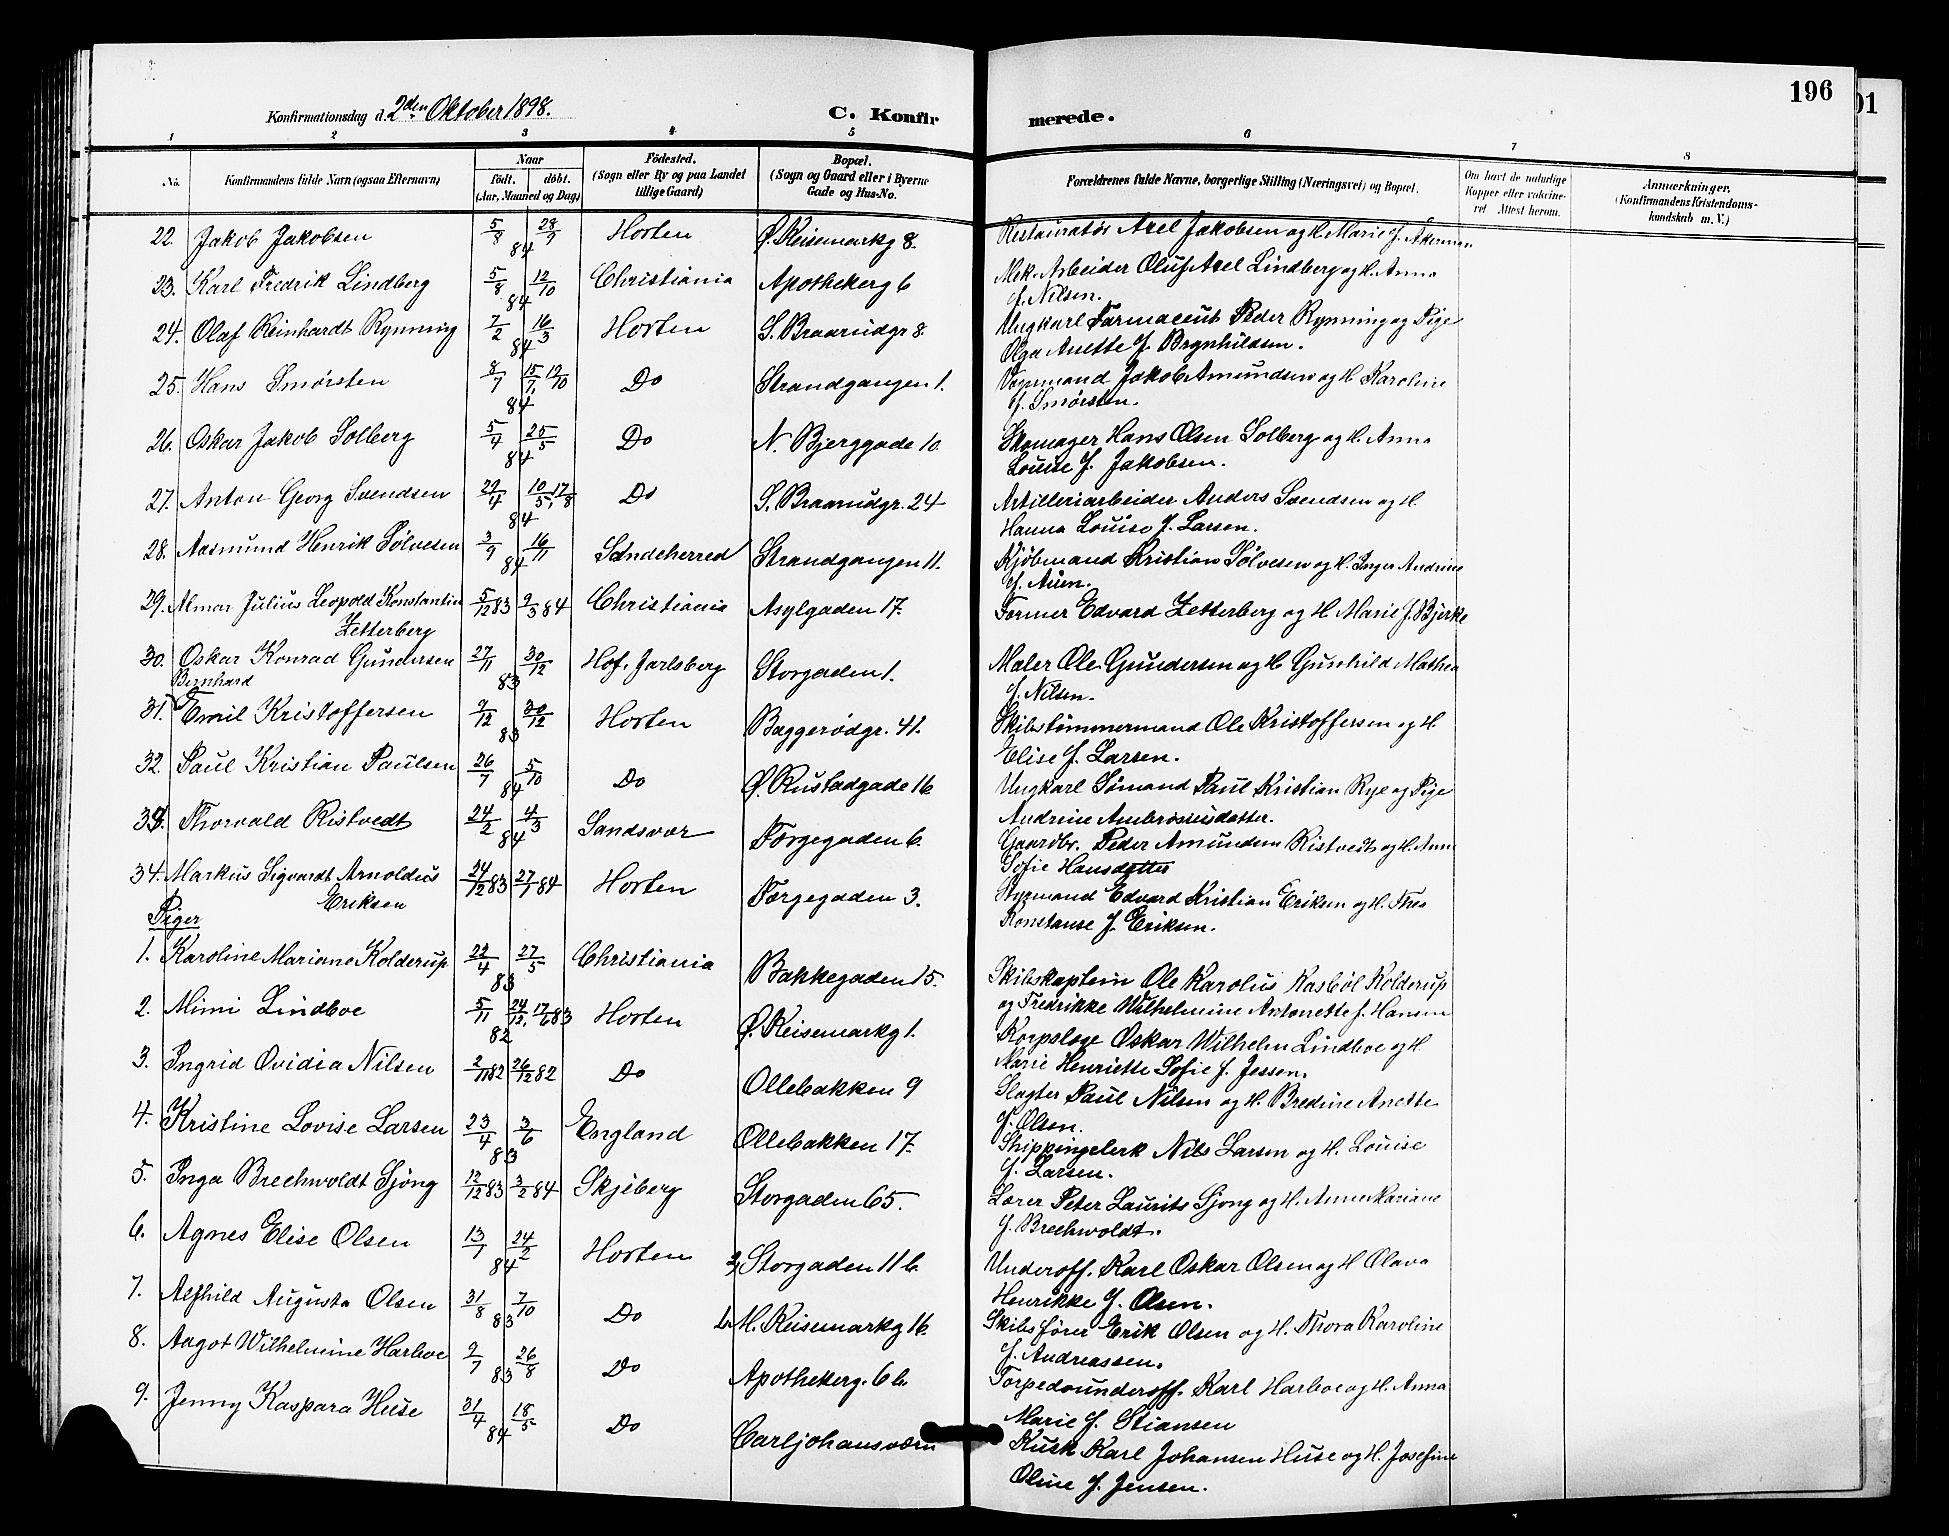 196
01
Konfirmationsdag d. 2den Oktober 1898.
C. Konfir
merede.
1 2 3 4 5 6 7 8
No.
Konfirmandens fulde Navn (ogsaa Efternavn)
Naar
født. døbt.
(Aar, Maaned og Dag)
Fødested.
(Sogn eller By og paa Landet
tillige Gaard)
Bopæl.
(Sogn og Gaard eller i Byerne
Gade og Hus-No.
Forældrenes fulde Navne, borgerlige Stilling (Næringsvei) og Bopæl.
Om havt de naturlige
Kopper eller vaccine-
ret Attest herom.
Anmærkninger.
(Konfirmandens Kristendoms-
kundskab m. V.)
22. Jakob Jakobsen 5/8 28/9 84 Horten Ø. Keisemarkg 8. Restauratør Axel Jakobsen og H. Marie f. Akerman
23. Karl Fredrik Lindberg 5/8 12/10 84 Christiania Apothekerg 6 Mek. Arbeider Oluf Axel Lindberg og H. Anna
f. Nilsen.
24. Olaf Reinhardt Rynning 7/2 16/3 84 Horten S. Braarudgr 8. Ungkarl Farmaceut Peder Rynning og Pige
Olga Anette f. Brynhildsen.
25. Hans Smørsten 8/7 15/7, 12/10 84 Do Strandgangen 1. Vognmand Jakob Amundsen og H Karoline
f. Smørsten.
26. Oskar Jakob Solberg 5/4 25/5 84 Do N. Bjerggade 10. Skomager Hans Olsen Solberg og H. Anna
Louise f. Jakobsen.
27. Anton Georg Svendsen 22/4 10/5, 17/8 84 Do S. Braarudgr. 24 Artilleriarbeider Anders Svendsen og H.
Hanna Louise f. Larsen.
28. Aasmund Henrik Sølvesen 3/9 16/11 84 Sandeherred Strandgangen 11. Kjøbmand Kristian Sølvesen og H. Inger Andrine
f. Auen.
29. Almar Julius Leopold Konstantin 5/12 83 2/3 84 Christiania Asylgaden 17. Former Edvard Zetterberg og H Marie f. Bjerke
Zetterberg
30. Oskar Konrad Gundersen 27/11 30/12 83 Hof, Jarlsberg Storgaden 1. Maler Ole Gundersen og H Gunhild Mathea
f. Nilsen.
Bernhard
31. Emil Kristoffersen 9/12 30/12 83 Horten Baggerødgr. 41. Skibstømmermand Ole Kristoffersen og H
Elise f. Larsen.
32. Paul Kristian Paulsen 26/7 5/10 84 Do Ø. Rustadgade 16 Ungkarl Sømand Paul Kristian Rye og Pige
Andrine Ambrosiusdatter.
33. Thorvald Ristvedt 24/2 4/3 84 Sandsvær Færgegaden 6. Gaardbr. Peder Amundsen Ristvedt og H. Anne
Sofie Hansdatter
34. Markus Sigvardt Arnoldus 24/12 83 27/1 84 Horten Færgegaden 3. Styrmand Edvard Kristian Eriksen og H. Thea
Eriksen
Konstanse f. Eriksen.
Piger
1. Karoline Mariane Kolderup 22/4 27/5 83 Christiania Bakkegaden 15. Skibskaptein Ole Karolus Kasbøl Kolderup
og Fredrikke Wilhelmine Antonette f. Hansen
2. Mimi Lindboe 5/11 24/12, 17/6 83 82 Horten Ø. Keisemarkg 1. Korpslæge Oskar Wilhelm Lindboe og H.
Marie Henriette Sofie f. Jessen.
3. Ingrid Ovidia Nilsen 2/11 82 26/12 82 Do Ollebakken 9 Slagter Paul Nilsen og H. Bredine Anette
f. Olsen.
4. Kristine Lovise Larsen 23/4 3/6 83 England Ollebakken 17. Shippingclerk Nils Larsen og H. Louise
f. Larsen.
5. Inga Brechwoldt Sjöng 12/12 83 3/2 84 Skjeberg Storgaden 65. Lærer Peter Laurits Sjong og H. Anne Mariane
f. Brechwoldt.
6. Agnes Elise Olsen 13/1 24/2 84 Horten Storgaden 11 b. Underoff. Karl Oskar Olsen og H Olava
Henrikke f. Olsen.
7. Alfhild Augusta Olsen 31/8 7/10 83 Do M. Keisemarkg 16. Skibsfører Erik Olsen og H. Thora Karoline
f. Andreassen.
8. Aagot Wilhelmine Harboe 2/7 26/8 83 Do Apothekerg. 6 b. Torpedounderoff. Karl Harboe og H. Anna
Marie f. Stiansen
9. Jenny Kaspara Huse 31/4 18/5 84 Do Carljohansværn Kusk Karl Johansen Huse og H. Josefine
Oline f. Jensen.